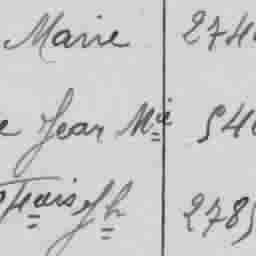 Marie 274
e Jean Mie 54
Frcis Jh 2785